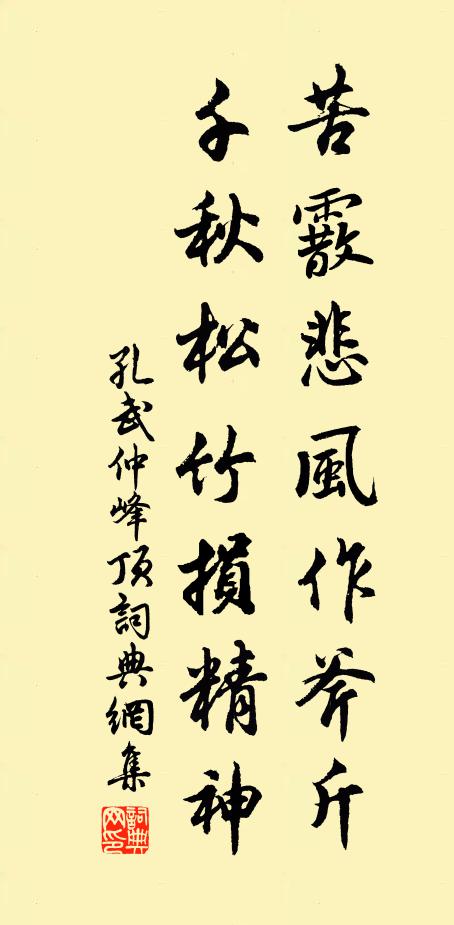 苦霰悲風作斧斤
千秋松竹損精神
孔武仲峰頂詞典網集
詞典网印